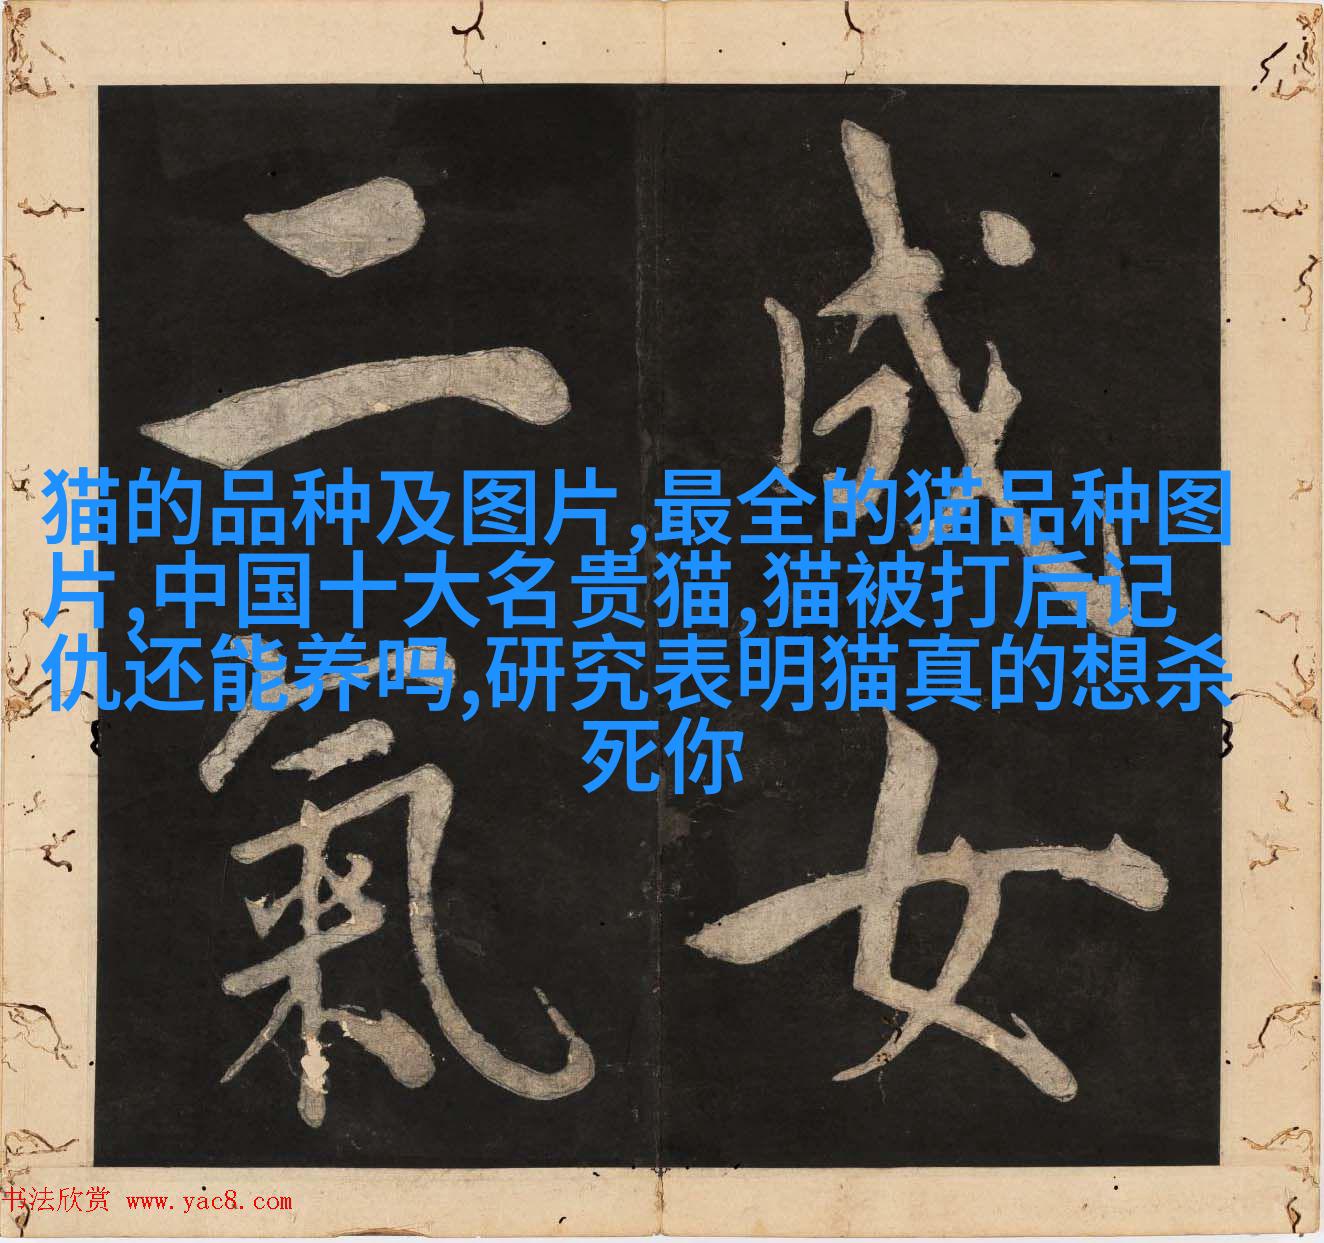 猫的品种及图片,最全的猫品种图
片,中国十大名贵猫,猫被打后记
仇还能养吗,研究表明猫真的想杀
死你
成女
二氣
书法欣赏 www.yac8.com